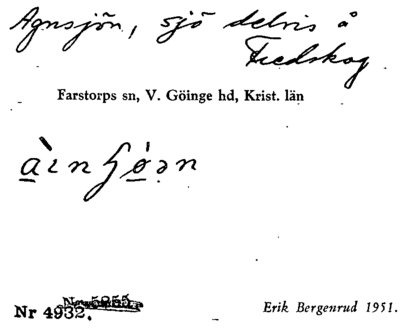 Agnsjön, sjö delvis å
Fredskog
Farstorps sn, V. Göinge hd, Krist. län
Nr 4932.
Erik Bergenrud 1951.